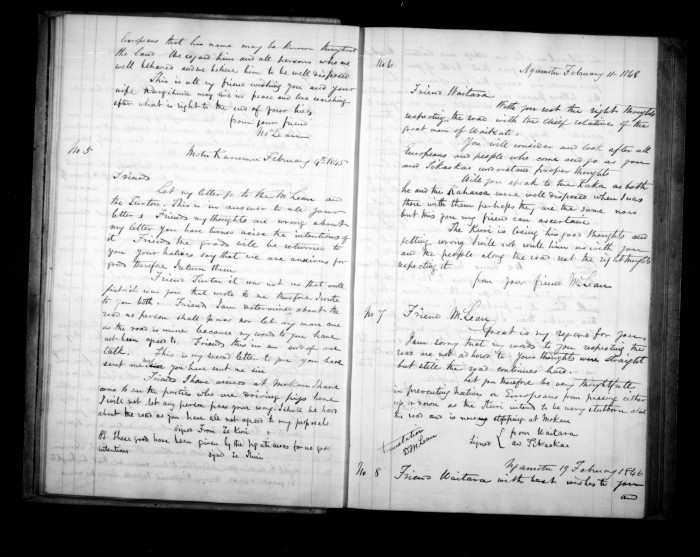 Europeans that his name may be known throughout
the land. We regard him and all persons who are
well behaved and we believe him to be well disposed
This is all my friend wishing you and your
wife may live in peace and love searching
after what is right to the end of your lives
from your friend
McLean
No 5
Motu Karamu February 4th 1845
Friends
Let my letter go to the McLean and
the Turton. This is in answer to all your
letters Friends my thoughts are wrong about
my letter you have turned aside the intentions of
it Friends the goods will be returned to
you your natives say that we are anxious for
goods therefore I return them
Friend Turton it was not me that wrote
first it was you that wrote to me therefore I wrote
to you both. Friends I am determined about the
road no person shall pass nor let any man use
as the road is mine because my words to you have
not been agreed to. Friends this is an end of our
talk. This is my second letter to you you have
sent me since you have sent me six
Friends I have arrived at Mokau I have
come to see the parties who are driving pigs here
I will not let any person pass your way. I shall be hard
about the road as you have not agreed to my proposals
Signed From Te Kini
PS. These goods have been given by the for no good
intentions signed Te Kini
No 6
Ngamotu February 11 1846
Friend Waitara
With you rest the right thoughts
respecting the road with the chief relatives of the
great men of Waikato.
You will consider and look after all
Europeans and people who come and go as you
and Tekaska understand proper thoughts
Will you speak to the Kaka as both
he and the Kaharoa were well disposed when I was
there with them perhaps they are the same now
but this you my friend can ascertain
The Kini is losing his good thoughts and
getting wrong I will not write him as with you
and the people along the road rest the right thoughts
respecting it
from your friend McLean
No 7
Friend McLean
Great is my regard for you,
I am sorry that my words to you respecting the
road are not adhered to your thoughts were straight
but still the road continues hard.
Let you therefore be very thoughtful
in preventing Natives or Europeans from passing either
up or down as the Kini intends to be very stubborn about
the road and is now stopping at Mokau
Translation
D McLean
Signed { from Waitara
Te Kaskar
Ngamotu 19 February 1846
No 8 Friend Waitara with best wishes to you
and